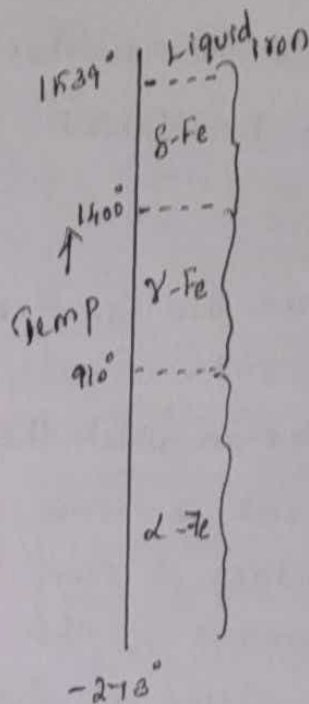 Liquid iron
1539°
δ-Fe
1400°
γ-Fe
Temp
910°
α-Fe
-273°